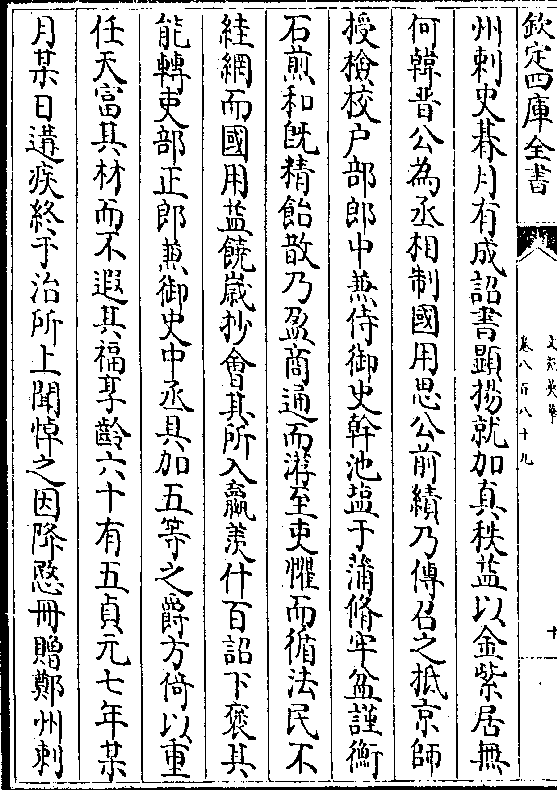 欽定四庫全書
文苑英華
卷八百八十九
十
州刺史朞月有成詔書顯揚就加真秩益以金紫居無
何韓晉公為丞相制國用思公前績乃傳召之抵京師
授檢校户部郎中兼侍御史幹池塩于蒲脩牢盆謹衡
石煎和旣精飴散乃盈商通而㳺至吏懼而循法民不
絓網而國用益饒嵗抄會其所入羸羨什百詔下褒其
能轉吏部正郎兼御史中丞具加五等之爵方倚以重
任天富其材而不遐其福享齡六十有五貞元七年某
月某日遘疾終于治所上聞悼之因降愍冊贈鄭州刺